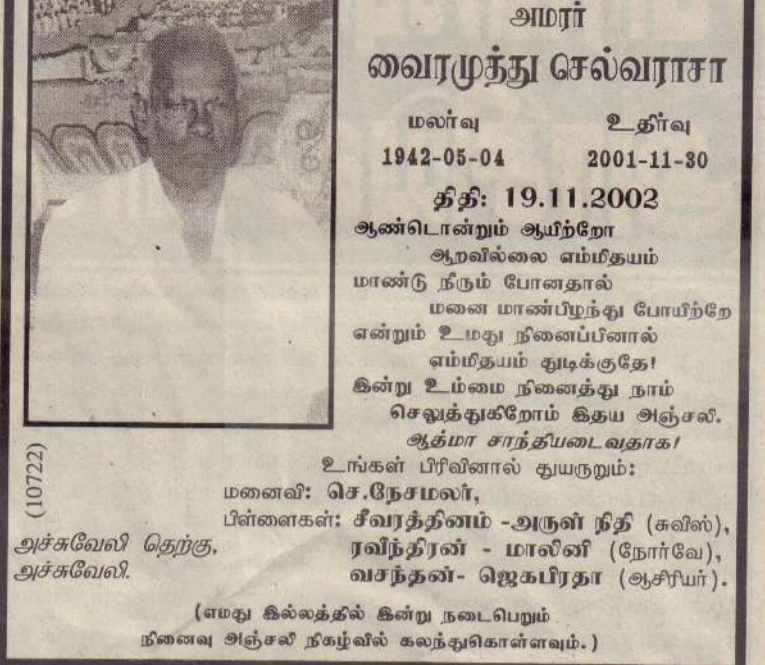 அமரர்
வைரமுத்து செல்வராசா
மலர்வு உதிர்வு
1942-05-04 2001-11-30
திதி: 19.11.2002
ஆண்டொன்றும் ஆயிற்றோ
ஆறவில்லை எம்மிதயம்
மாண்டு நீரும் போனதால்
மனை மாண்பிழந்து போயிற்றே
என்றும் உமது நினைப்பினால்
எம்மிதயம் துடிக்குதே!
இன்று உம்மை நினைத்து நாம்
செலுத்துகிறோம் இதய அஞ்சலி.
ஆத்மா சாந்தியடைவதாக!
உங்கள் பிரிவினால் துயருறும்:
மனைவி: செ.நேசமலர்,
பிள்ளைகள்: சீவரத்தினம் -அருள் நிதி (சுவிஸ்),
ரவீந்திரன் - மாலினி (நோர்வே),
வசந்தன்- ஜெகபிரதா (ஆசிரியர்).
(10722)
அச்சுவேலி தெற்கு,
அச்சுவேலி.
(எமது இல்லத்தில் இன்று நடைபெறும்
நினைவு அஞ்சலி நிகழ்வில் கலந்துகொள்ளவும்.)